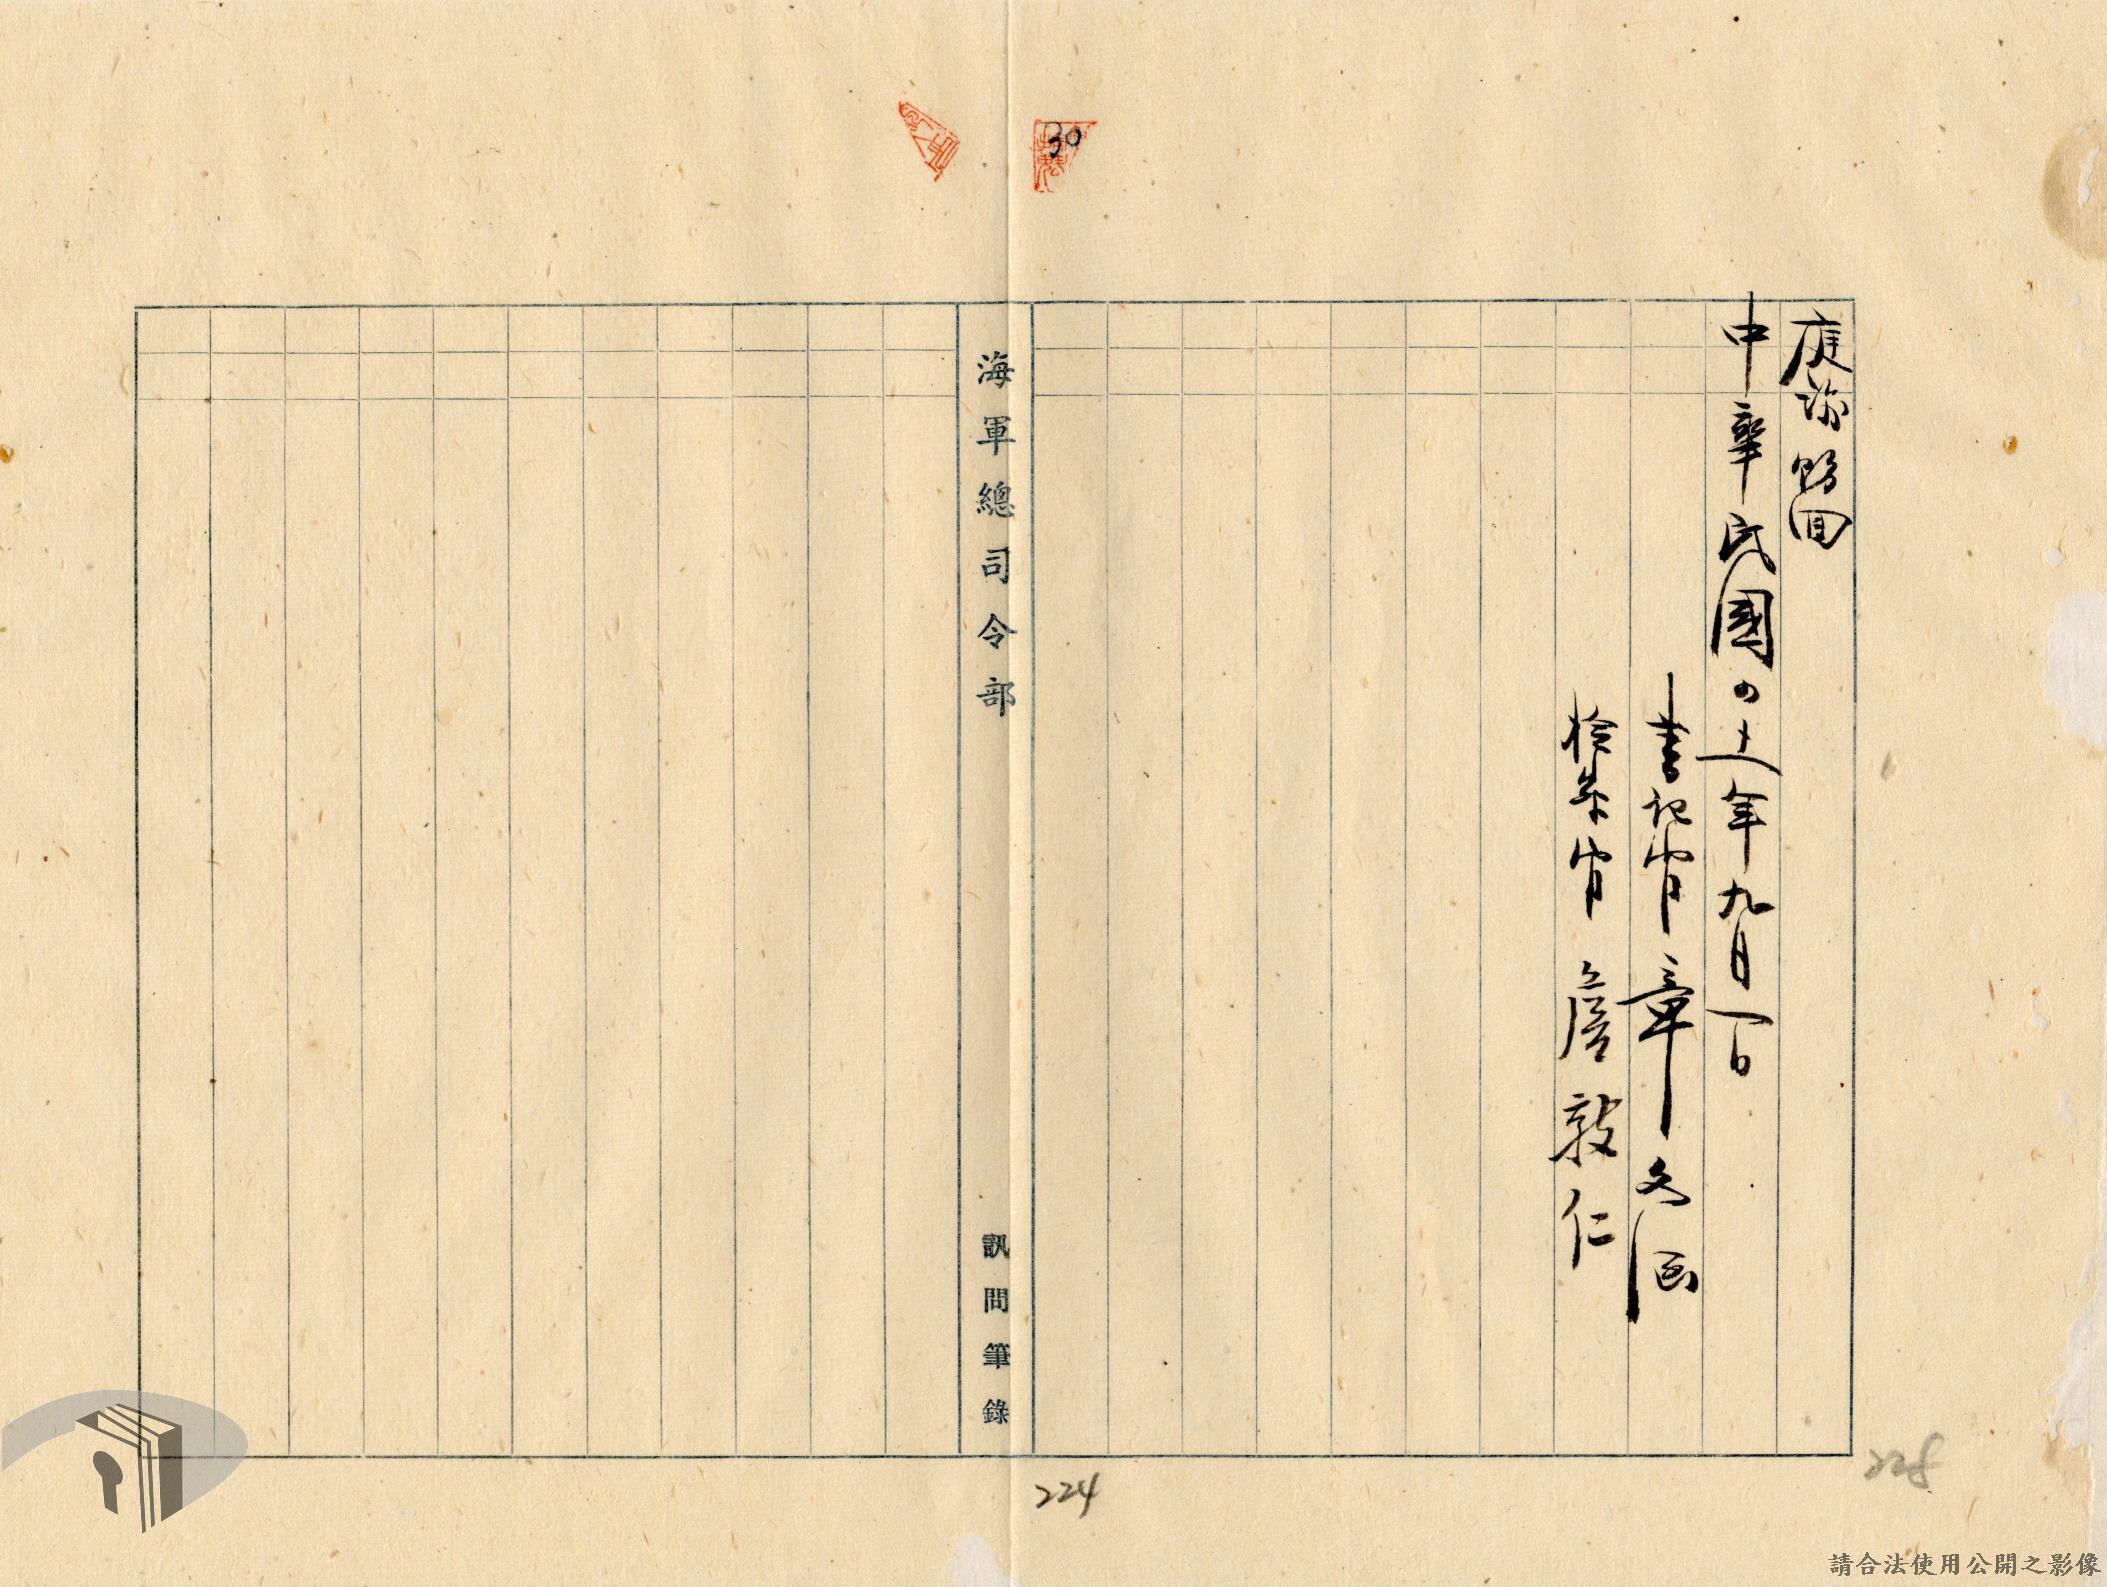 30
庭諭飭回
中華民國四十一年九月一日
書記官 章文
檢察官 詹敦仁
海軍總司令部 訊問筆錄
224
228
請合法使用公開之影像